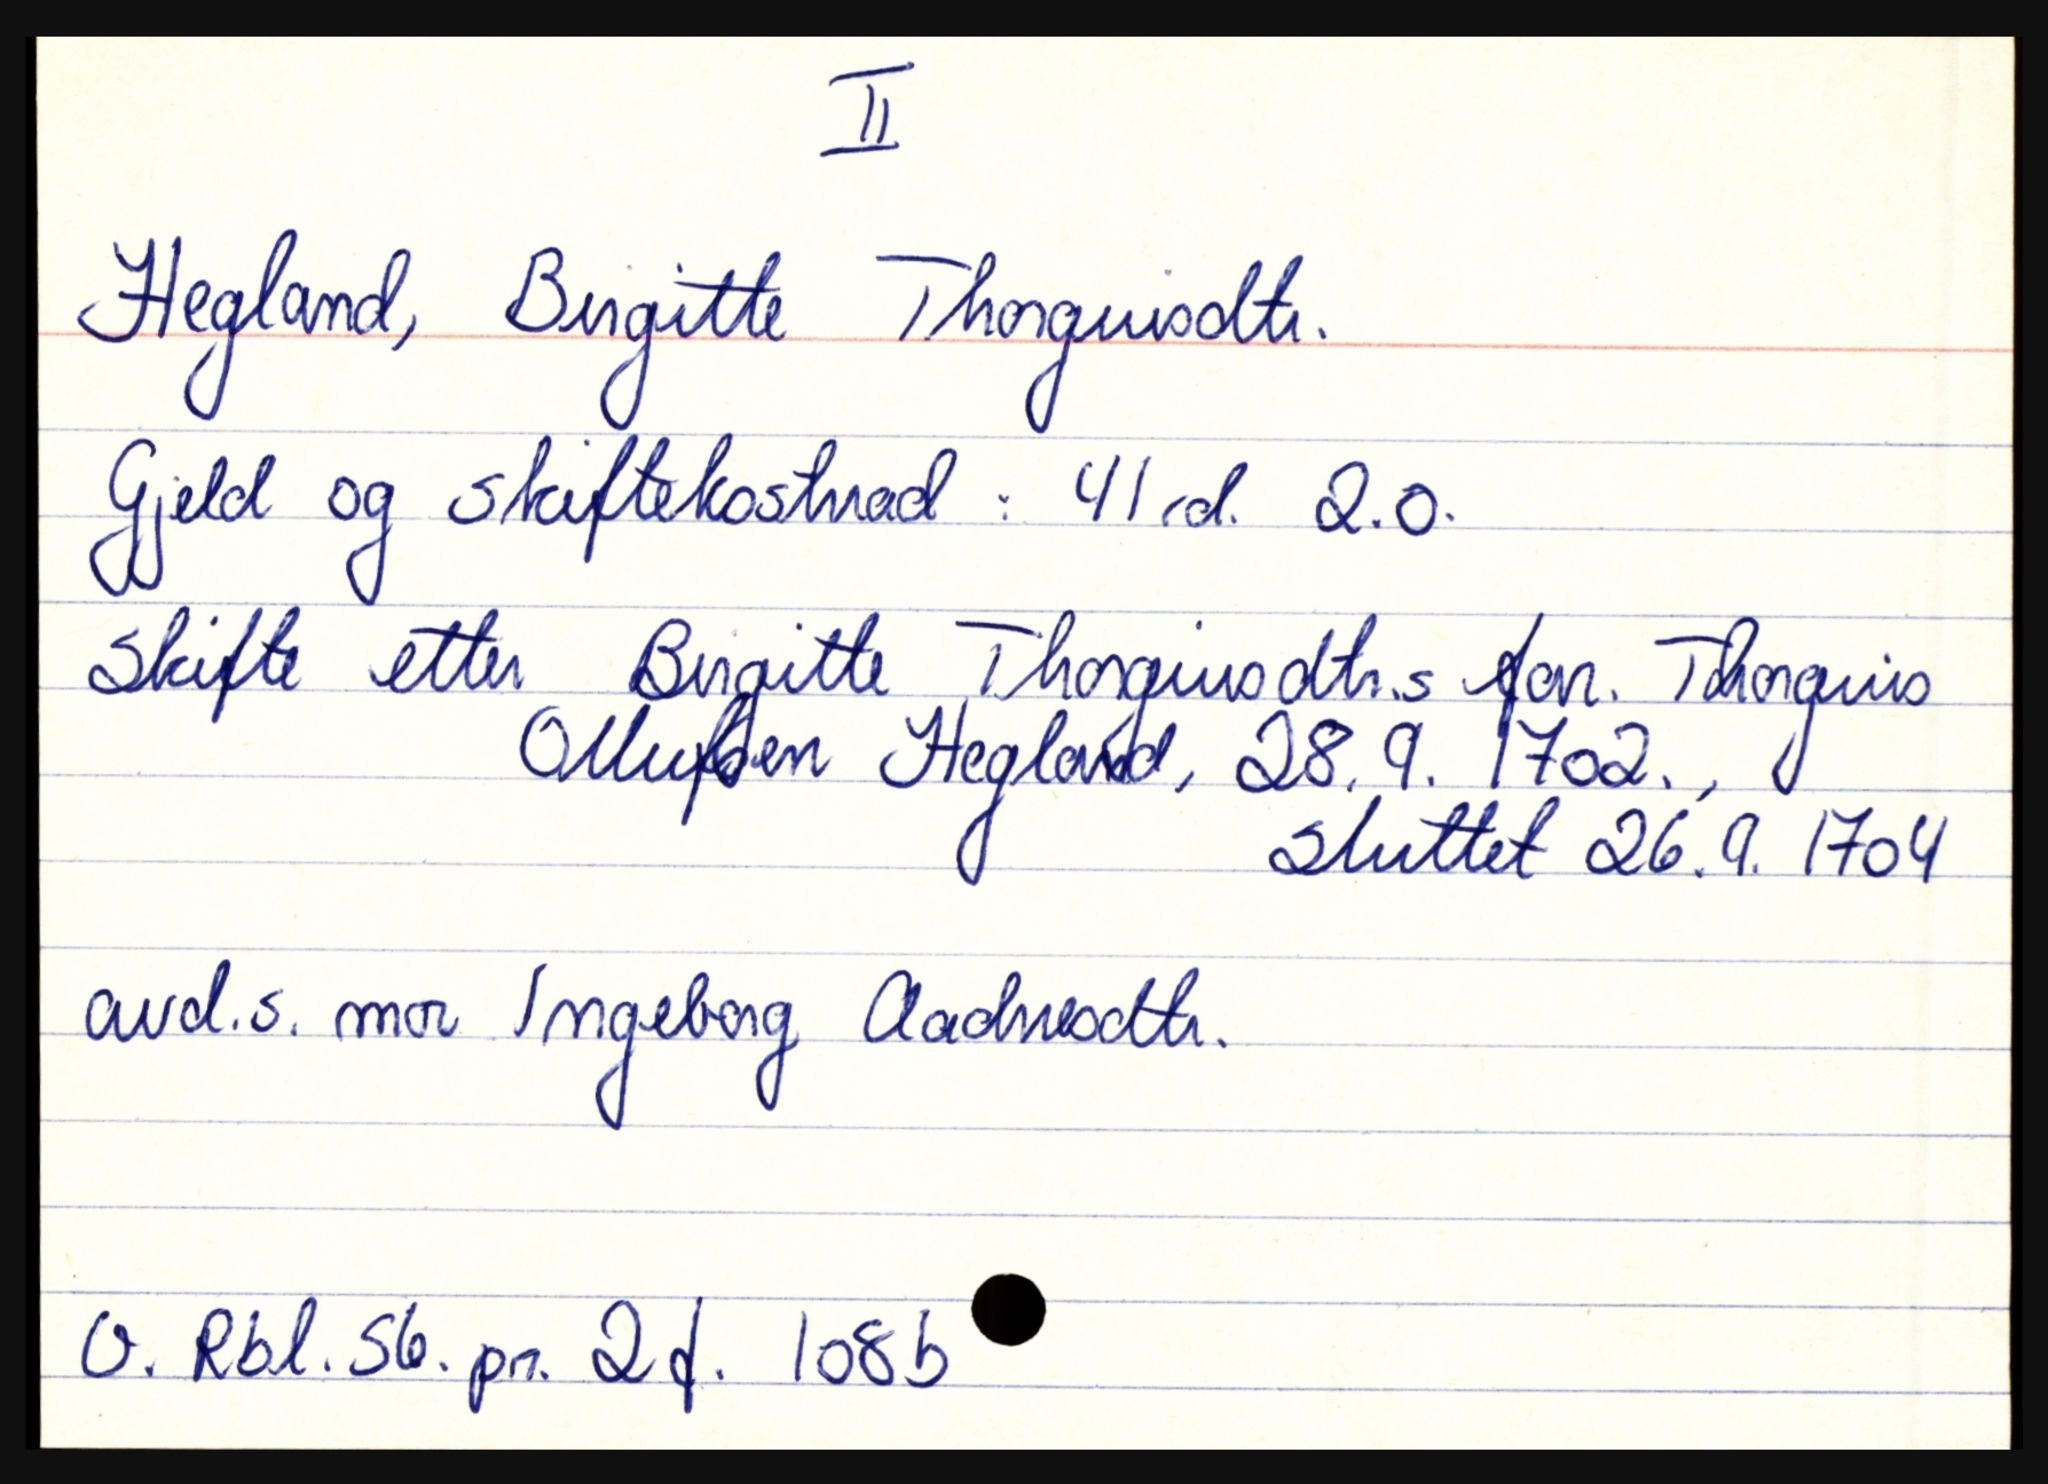 II
Hegland, Birgitte Thorguisdtr.
Gjeld og skiftekostnad: 41 rd. 2.0.
Skifte etter Birgitte Thorguisdtr.s far. Thorguis
Ollufsen Hegland, 28.9. 1702.,
sluttet 26.9. 1704
avd.s. mor Ingeborg Aadnesdtr.
V. Rbl. Sb. pr. 2 f. 108b